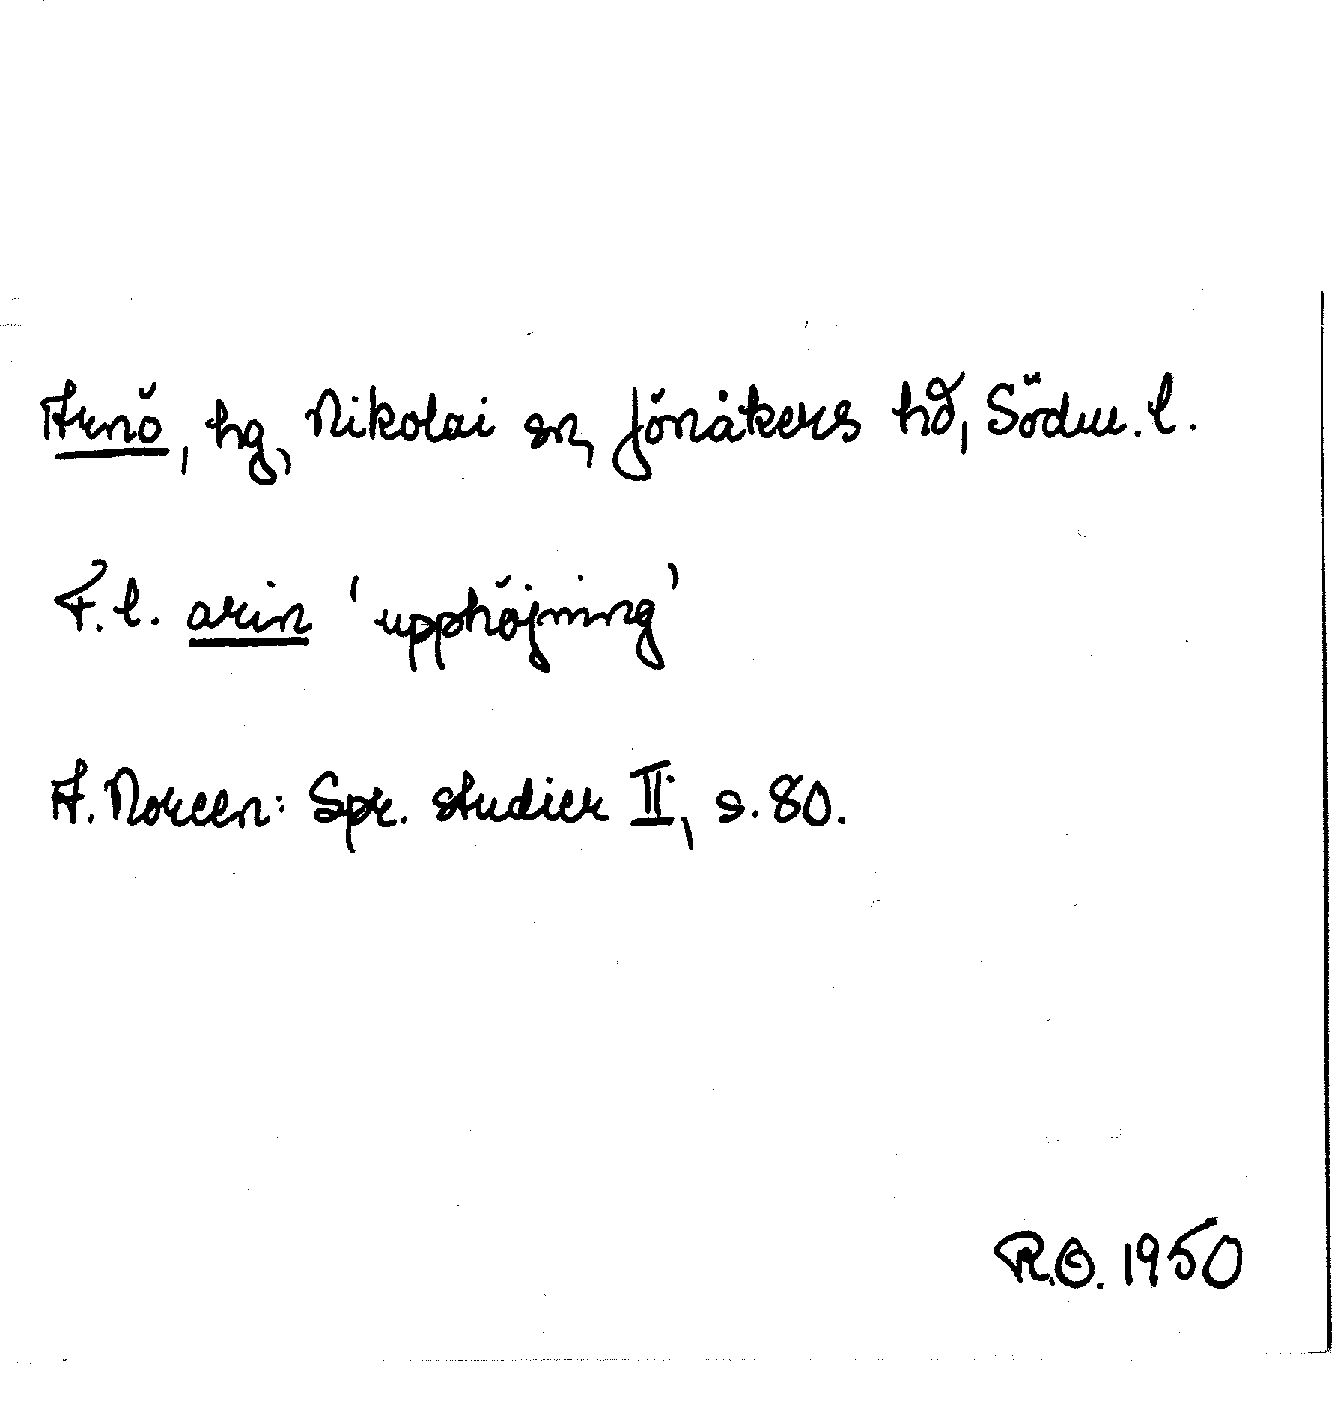 Arnö, hg, Nikolai sn, Jönåkers hd, Södm. l.
F. l. arin 'upphöjning'
A. Noreen: Spr. studier II, s. 80.
R.O. 1950